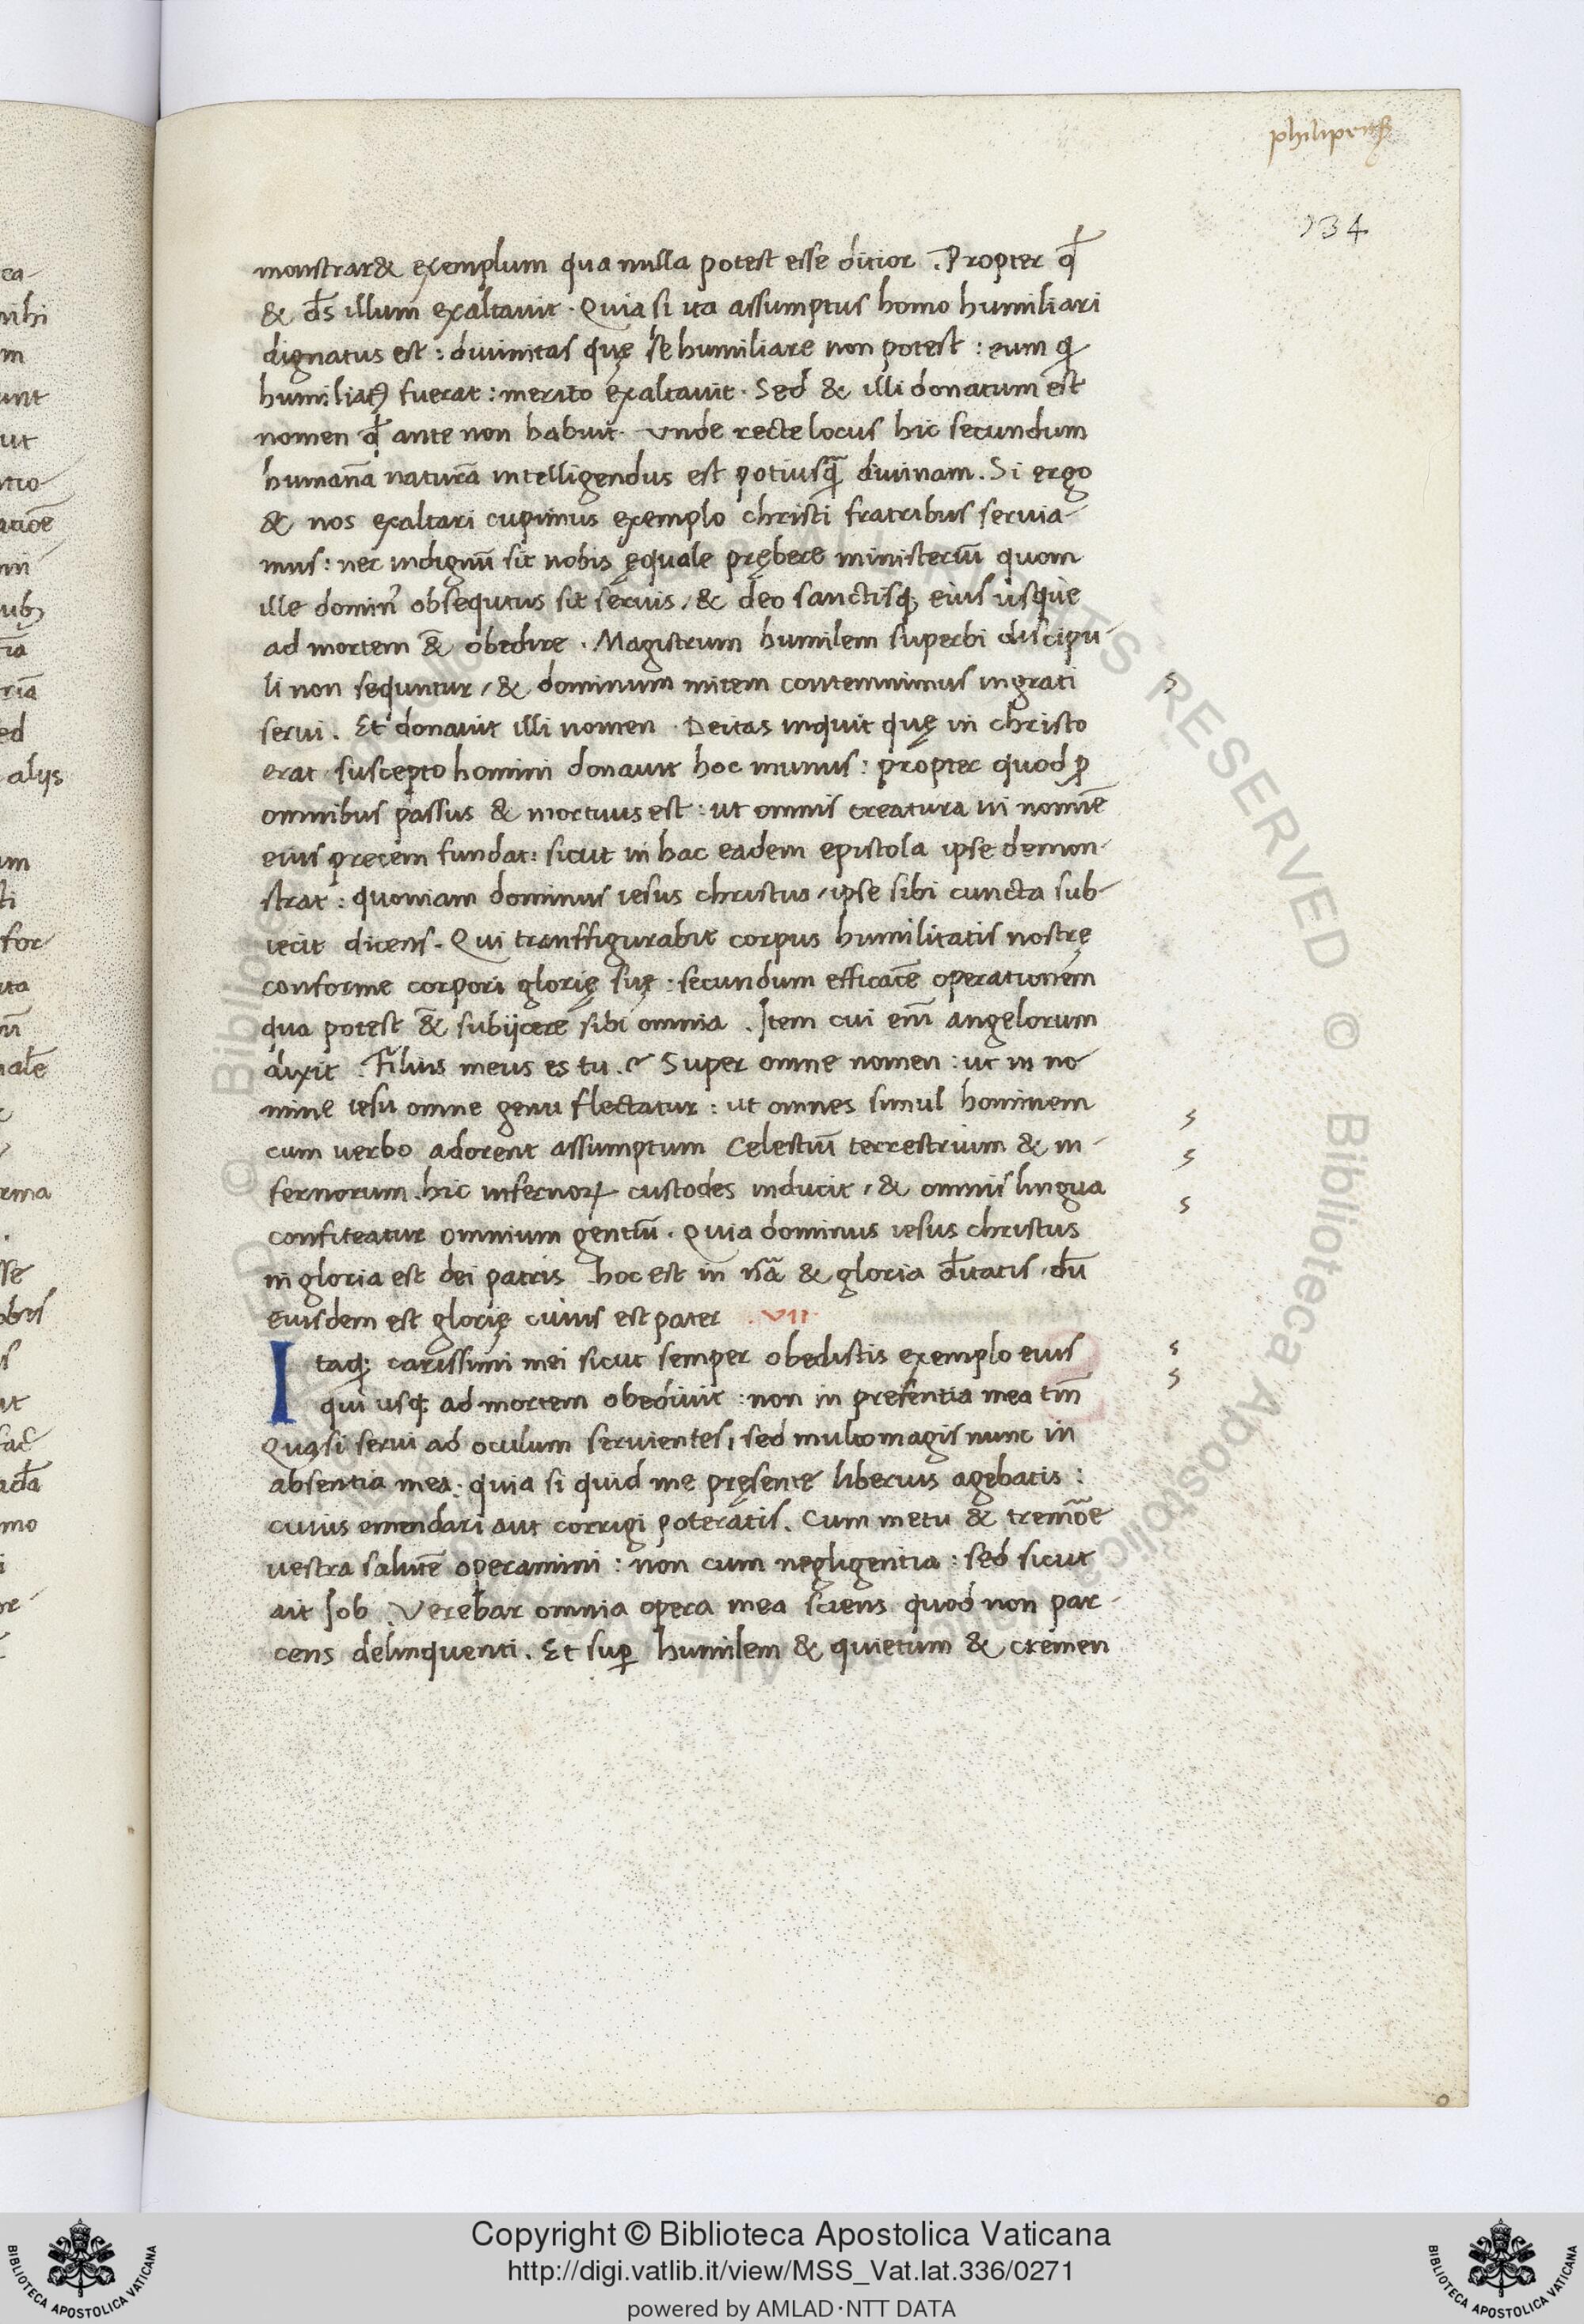 philipens
134
monstrar& exemplum qua nulla potest esse ditior . Propter qđ
& ds̄ illum exaltauit . Quia si ita assumptus homo humiliari
dignatus est : diuinitas quę se humiliare non potest : eum q
humiliatꝰ fuerat : merito exaltauit . Sed & illi donatum est
nomen qđ ante non habuit . Vnde recte locus hic secundum
humanā naturā intelligendus est potiusq̄ diuinam . Si ergo
& nos exaltari cupimus exemplo christi fratribus seruia-
mus : nec indignū sit nobis ęquale prębere ministeriū quom
ille domin' obsequtus sit seruis , & deo sanctisq; eius usque
ad mortem &̄ obedire . Magistrum humilem superbi discipu-
li non sequntur , & dominum mitem contemnimus ingrati
serui . Et donauit illi nomen . Deitas inquit quę in christo
erat suscepto homini donauit hoc munus : propter quod ꝓ
omnibus passus & mortuus est : ut omnis creatura in nomīe
eius precem fundat : sicut in hac eadem epistola ipse demon-
strat : quoniam dominus iesus christus , ipse sibi cuncta sub-
iecit dicens . Qui transfigurabit corpus humilitatis nostrę
conforme corpori glorię suę : secundum efficacē operationem
qua potest &̄ subijcere sibi omnia . Item cui enī angelorum
dixit . Filius meus es tu . Super omne nomen : ut in no
mine iesu omne genu flectatur : ut omnes simul hominem
cum uerbo adorent assumptum Celestiū terrestrium & in-
fernorum . hic infernoꝝ custodes inducit , & omnis lingua
confiteatur omnium gentiū . Quia dominus iesus christus
in gloria est dei patris hoc est in nā & gloria d̄itatis , dū
eiusdem est glorię cuius est pater . VII
Itaq; carissimi mei sicut semper obedistis exemplo eius
qui usq; ad mortem obediuit : non in presentia mea tm̄
Quasi serui ad oculum seruientes , sed multo magis nunc in
absentia mea : quia si quid me pręsente liberius agebatis :
cuius emendari aut corrigi poteratis . Cum metu & tremōe
uestra salutē operamini : non cum negligentia : sed sicut
ait Iob . Verebar omnia opera mea sciens quod non par-
cens delinquenti . Et suꝑ humilem & quietum & tremen
Copyright © Biblioteca Apostolica Vaticana
http://digi.vatlib.it/view/MSS_Vat.lat.336/0271
powered by AMLAD·NTT DATA
BIBLIOTECA APOSTOLICA VATICANA
BIBLIOTECA APOSTOLICA VATICANA